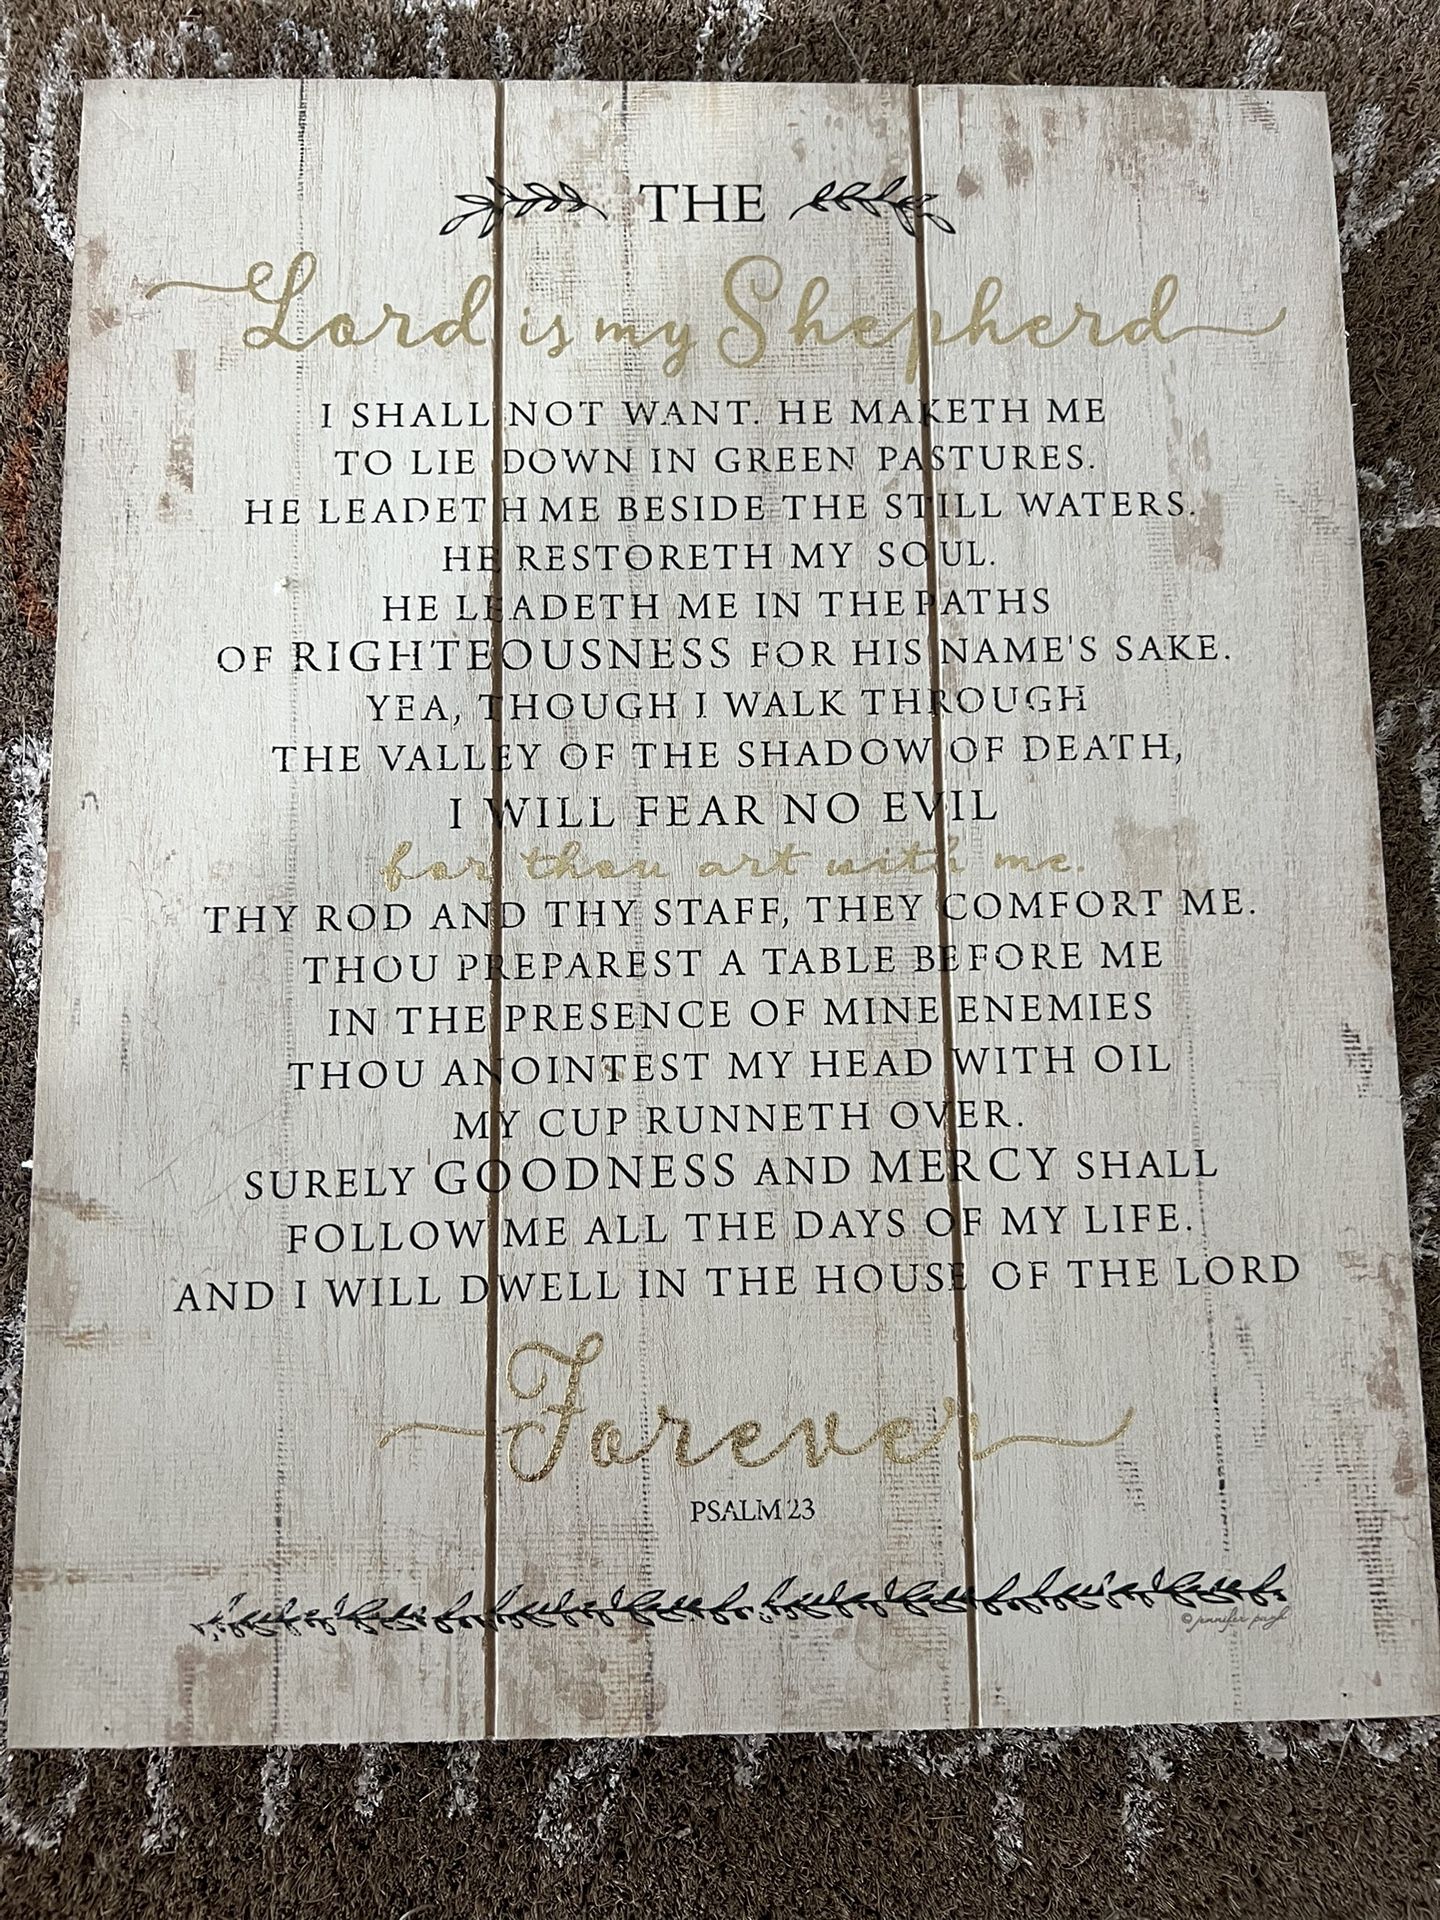 THE
Lord is my Shepherd
I SHALL NOT WANT. HE MAKETH ME
TO LIE DOWN IN GREEN PASTURES.
HE LEADETH ME BESIDE THE STILL WATERS.
HE RESTORETH MY SOUL.
HE LEADETH ME IN THE PATHS
OF RIGHTEOUSNESS FOR HIS NAME'S SAKE.
YEA, THOUGH I WALK THROUGH
THE VALLEY OF THE SHADOW OF DEATH,
I WILL FEAR NO EVIL
for thou art with me.
THY ROD AND THY STAFF, THEY COMFORT ME.
THOU PREPAREST A TABLE BEFORE ME
IN THE PRESENCE OF MINE ENEMIES
THOU ANOINTEST MY HEAD WITH OIL
MY CUP RUNNETH OVER.
SURELY GOODNESS AND MERCY SHALL
FOLLOW ME ALL THE DAYS OF MY LIFE.
AND I WILL DWELL IN THE HOUSE OF THE LORD
Forever
PSALM 23
© jennifer pugh